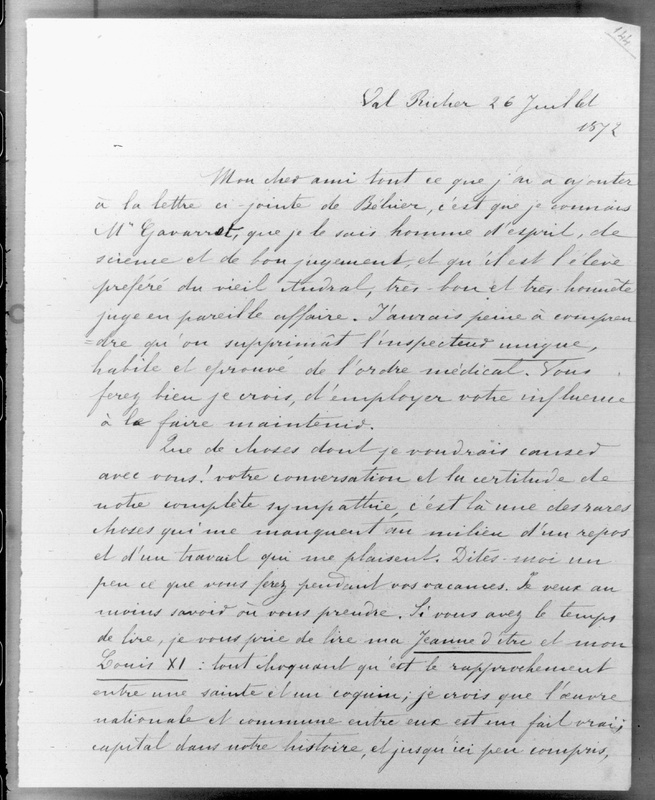 144
Val Richer 26 Juillet
1872
Mon cher ami tout ce que j'ai a ajouter
à la lettre ci-jointe de Béhier, c'est que je connais
Mr Gavarret, que je le sais homme d'esprit, de
science et de bon jugement, et qu'il est l'élève
préféré du vieil Andral, très-bon et très-honnête
juge en pareille affaire. J'aurais peine à compren
=dre qu'on supprimât l'inspecteur unique,
habile et eprouvé de l'ordre médical. Vous
ferez bien je crois, d'employer votre influence
à le faire maintenir.
Que de choses dont je voudrais causer
avec vous! votre conversation et la certitude de
notre complète sympathie, c'est là une des rares
choses qui me manquent au milieu d'un repos
et d'un travail qui me plaisent. Dites-moi un
peu ce que vous ferez pendant vos vacances. Je veux au
moins savoir où vous prendre. Si vous avez le temps
de lire, je vous prie de lire ma Jeanne d'Arc et mon
Louis XI : tout choquant qu'est le rapprochement
entre une sainte et un coquin; je crois que l'œuvre
nationale et commune entre eux est un fait vrai,
capital dans notre histoire, et jusqu'ici peu compris,